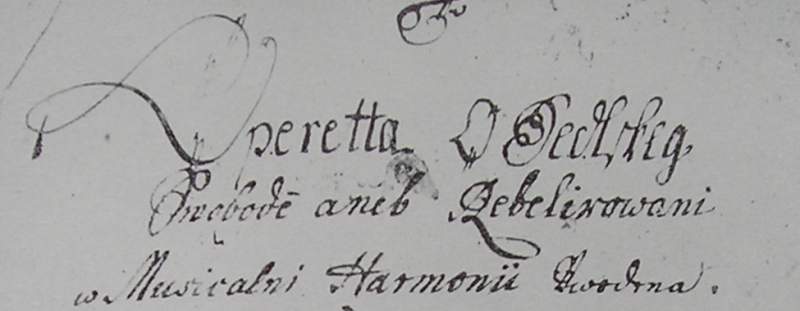 Operetta O Sedlskeg
Swobodě aneb Rebelirowani
w Musicalni Harmonii Uwedena.